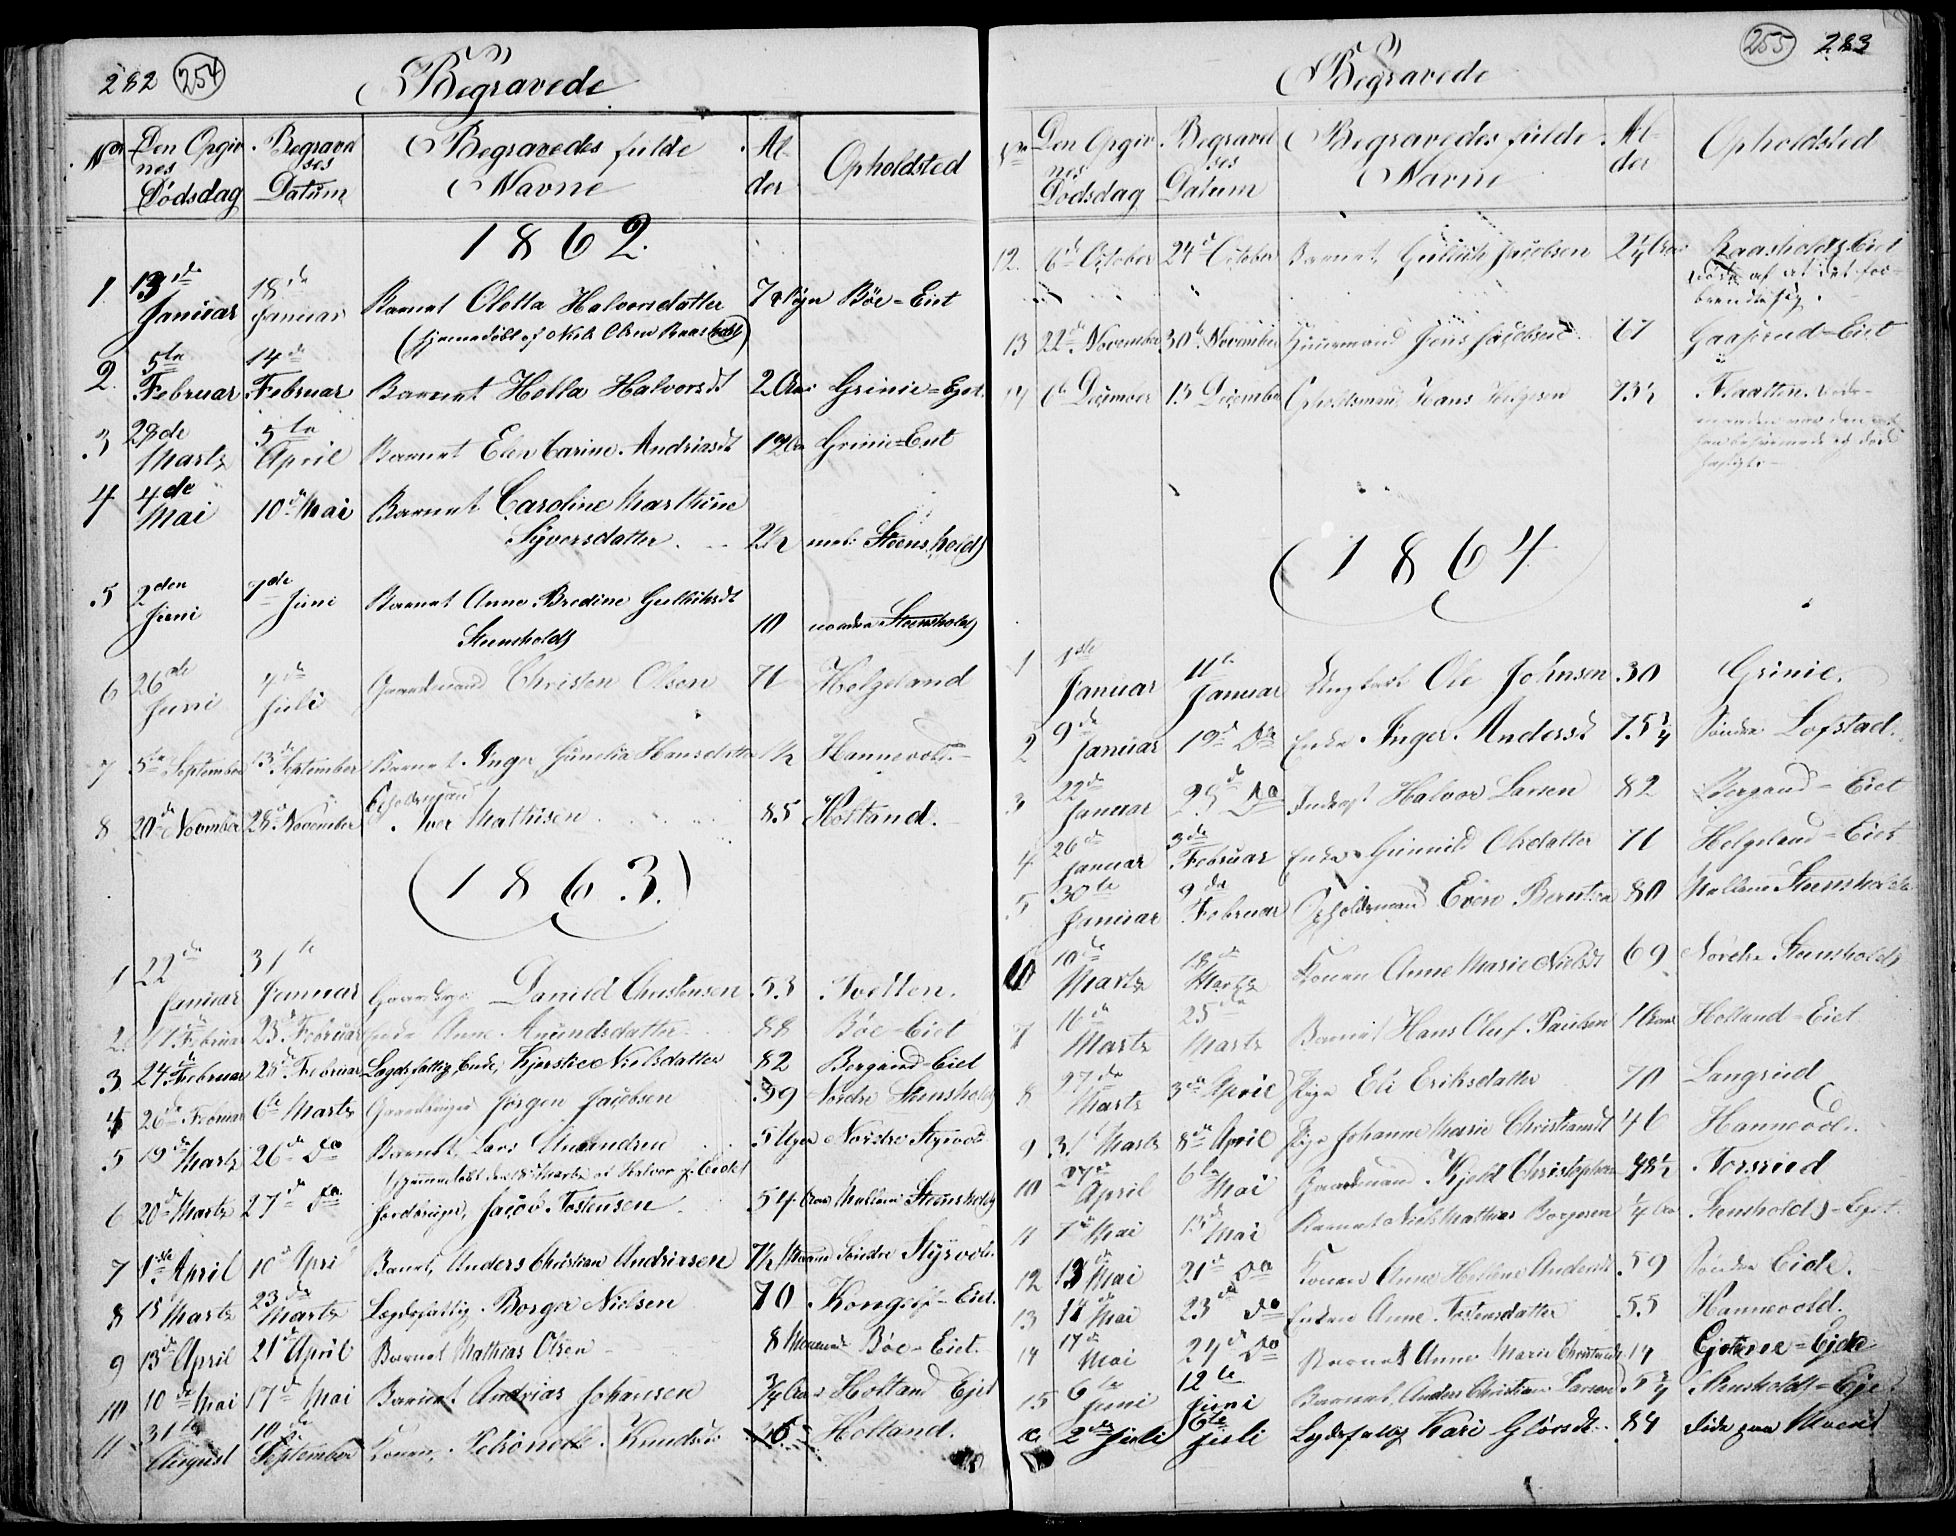 282 254
Begravede
No Den Opgivnes Dødsdag Begravelses Datum Begravedes fulde Navne Alder Opholdsted
1862.
1. 13de Januar 18de Januar Barnet Oletta Halvorsdatter 7 Døgn Böe-Eiet
(hjemmedöbt af Niels Olsen
2. 5te Februar 14de Februar Barnet Hella Halvorsdt 2 Grinie-Ejet.
3 28de Martz 5te April Barnet Elen Carine Andriasdt Grinie-Eiet
4 4de Mai 10de Mai Barnet Caroline Marthine
Syversdatter 2½ mel: Steensholdt
5 2den Juni 7de Juni Barnet Anne Bredine Gulliksdt
Stensholdt 10 nordre Steensholdt
6 26de Juni 4de Juli Gaardmand Christen Olsen 71 Helgeland
7 5te September 13de September Barnet Inger Hansdatter ½ Hannevold
8 20de November 28de November Opholdsmand
Iver Mathisen 85 Holtand.
(1863.)
1 22de Januar 31te Januar Daniel Christensen 53 Tvetten.
2. 17de Februar 23de Februar Enke Anne Amundsdatter 88 Böe-Eiet
3 24de Februar 28de Februar Lægdsfattig Enke, Kjerstie Nielsdatter 82 Bergsrud Eiet
4 26de Februar 6te Martz Jörgen Jacobsen 39 Nordre Stensholdt
5 19de Martz 26de Do Barnet, Lars 5 Uger Nordre Styrvold
(hjemmedöbt den 18de Martz af Halvor J. Eide)
6 20de Martz 27de Do Jacob Tostensen 54 Mellem Stensholdt
7 1ste April 10de April Barnet, Anders Christian Andriasen 7½ Maaned Söndre Styrvold
8 15 Martz 23de Martz Lægdsfattig Borger Nielsen 70 Eiet.
9 13de April 21de April Barnet Mathias Olsen 8 Maaneder Böe-Eiet.
10 10de Mai 17de Mai Barnet Andrias Johansen ¾ Aar Holtand Ejet
11 31te August 10de September Konen, Knudsdt Holtand.
255 283
Begravede
No Den Opgivnes Dødsdag Begravelses Datum Begravedes fulde Navne Alder Opholdsted
12. 6de October 24de October Barnet Gullik Jacobsen Raasholdt Eiet
døde af at det forbrendte sig.
13 22de November 30te November Huusmand Jens Jacobsen 67 Gaasrud-Eiet
14 6te December 15 December Opholdsmand Hans Helgesen 73½ Flaatten.
(1864)
1 1ste Januar 11te Januar Ungkarl Ole Johnsen 30 Grinie.
2 9de Januar 19de Do Enke Inger Andersdt 75¾ Söndre Lofstad.
3 22de Januar 29de Do Halvor Larsen 82 Bergsrud-Eiet
4 26de Januar 3de Februar Enke Gunnild Olsdatter 71 Helgeland-Eiet
5 30te Januar 9de Februar Opholdsmand Even Berntsen 80 Mellem Stensholdt
6 10de Martz 18de Martz Konen Anne Marie Nielsdt 69 Nordre Stensholdt
7 16de Martz 25de Martz Barnet Hans Oluf Paulsen 1 Holtand-Eiet
8 27de Martz 3de April Pige Eli Eriksdatter 70 Langrud
9 31 Martz 8de April Pige Johanne Marie Christiansdt 46 Hannevold.
10 27de April 6te Mai Gaardmand Kjeld Christophersen 48½ Torsrud
11 7de Mai 15de Mai Barnet Niels Mathias Borgersen ¼ Aar Stensholdt-Ejet
12 13de Mai 21de Do Konen Anne Hellene Andersdt 59 Söndre Eide.
13 14de Mai 23de Do Enken Anne Tostensdatter 55 Hannevold.
14 17de Mai 24de Do Barnet Anne Marie 14
15 6te Juni 12te Juni Barnet, Anders Christian Larsen 5¾ Stensholdt-Eje.
2de Juli 6te Juli Lægdsfattig Kari 84